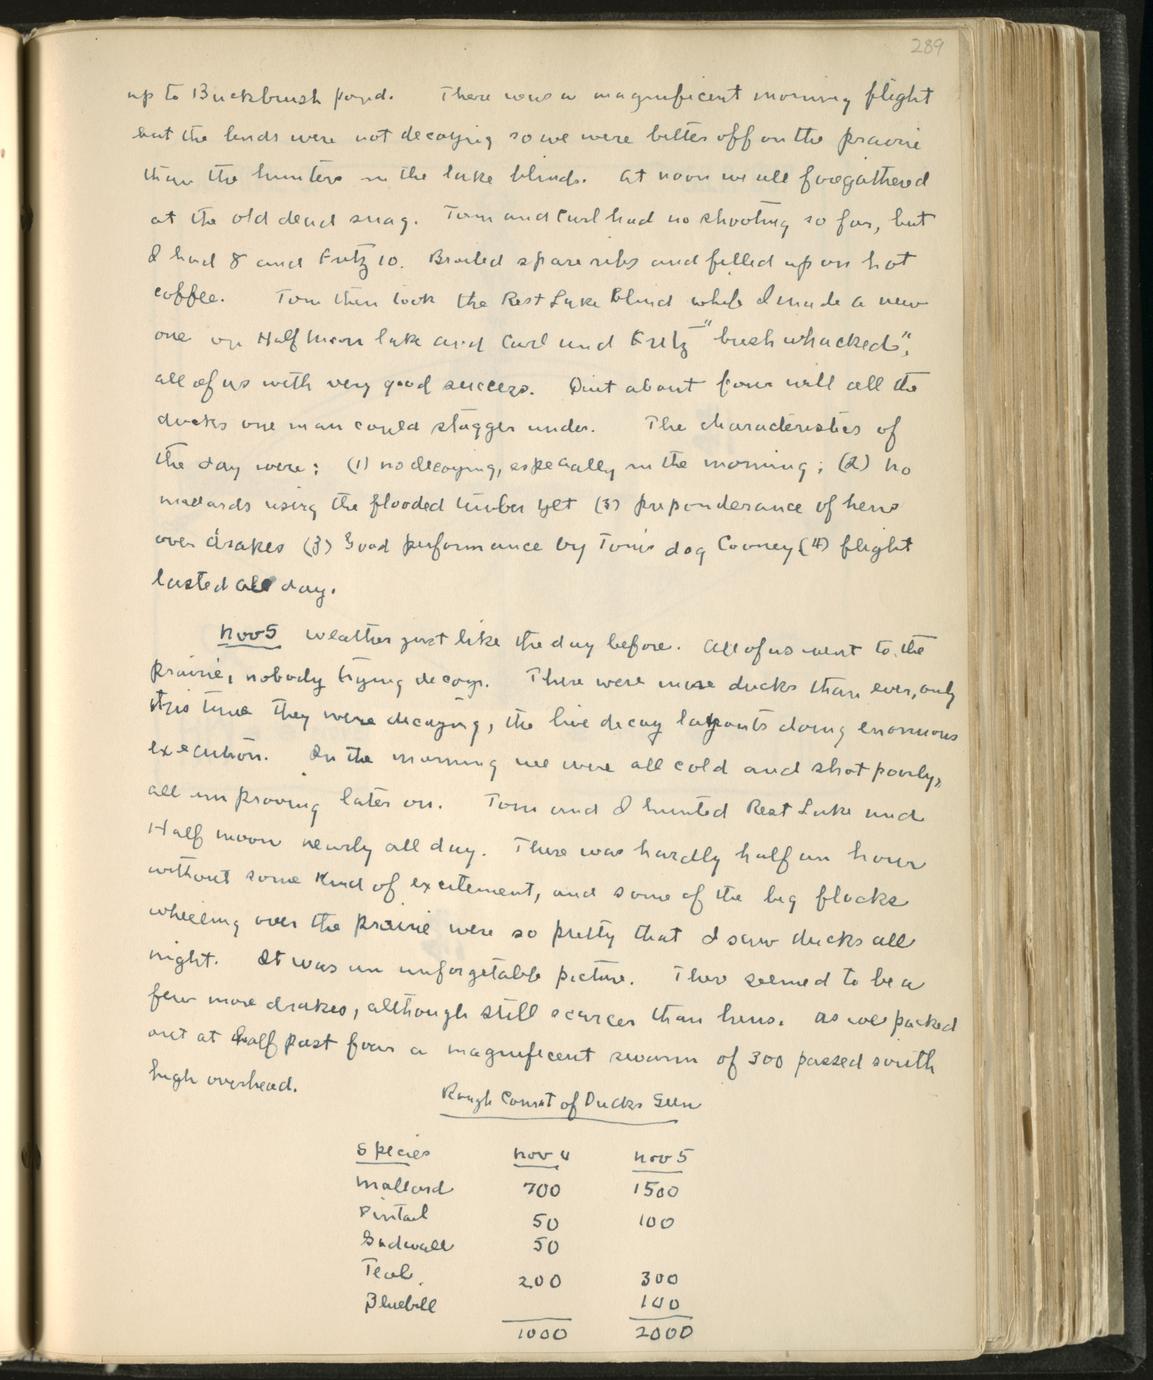 289
up to Buckbrush pond. There was a magnificent morning flight
but the birds were not decoying so we were better off on the prairie
than the hunters in the lake blinds. At noon we all foregathered
at the old dead snag. Tom and Carl had no shooting so far, but
I had 8 and Fritz 10. Broiled spareribs and filled up on hot
coffee. Tom then took the Rest Lake Blind while I made a new
one on Half Moon lake and Carl and Fritz "bush whacked",
all of us with very good success. Quit about four with all the
ducks one man could stagger under. The characteristics of
the day were: (1) no decoying, especially in the morning; (2) no
mallards using the flooded timber yet (3) preponderance of hens
over drakes (3) Good performance by Tom's dog Cooney (4) flight
lasted all day.
Nov 5 weather just like the day before. All of us went to the
prairie, nobody trying decoys. There were more ducks than ever, only
this time they were decoying, the live decoy layouts doing enormous
execution. In the morning we were all cold and shot poorly,
all improving later on. Tom and I hunted Rest Lake and
Half moon nearly all day. There was hardly half an hour
without some kind of excitement, and some of the big flocks
wheeling over the prairie were so pretty that I saw ducks all
night. It was an unforgetable picture. There seemed to be a
few more drakes, although still scarcer than hens. As we packed
out at half past four a magnificent swarm of 300 passed south
high overhead.
Rough Count of Ducks Seen
Species Nov 4 Nov 5
Mallard 700 1500
Pintail 50 100
Gadwall 50
Teal 200 300
Bluebill 100
1000 2000